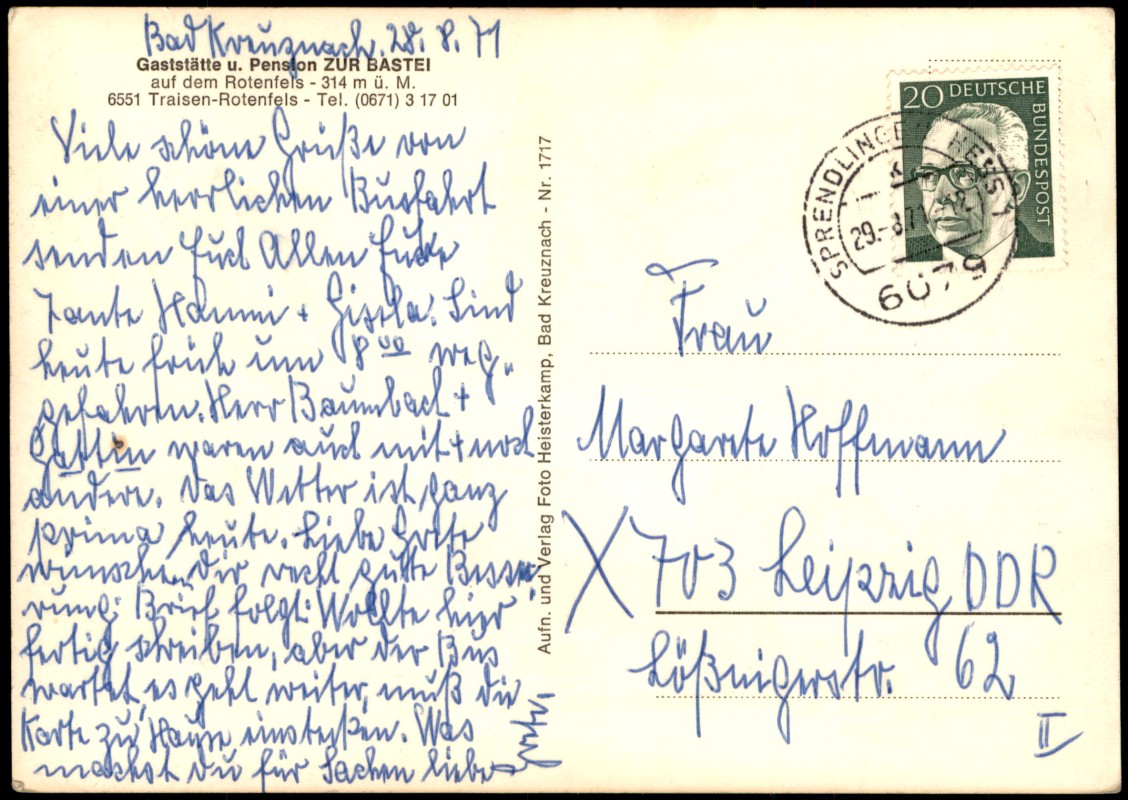 Bad Kreuznach. 28. 8. 71
Gaststätte u. Pension ZUR BASTEI
auf dem Rotenfels - 314 m ü. M.
6551 Traisen-Rotenfels - Tel. (0671) 3 17 01
Viele schöne Grüße von
einer herrlichen Busfahrt
senden Euch Allen Eure
Tante Hanni + Gisela. Sind
heute früh um 8 00 weg-
gefahren. Herr Baumbach +
Gattin waren auch mit + noch
andere. Das Wetter ist ganz
prima heute. Liebe Grete
wünsche Dir recht gute Besse-
rung. Brief folgt. Wollte hier
fertig schreiben, aber der Bus
wartet, es geht weiter, muß die
Karte zu Hause einstecken. Was
machst Du für Sachen liebe
Grete,
Aufn. und Verlag Foto Heisterkamp, Bad Kreuznach - Nr. 1717
20 DEUTSCHE
BUNDESPOST
SPRENDLINGEN
29.-8.71
6079
Frau
Margarete Hoffmann
X 703 Leipzig DDR
Lößnigerstr. 62
II